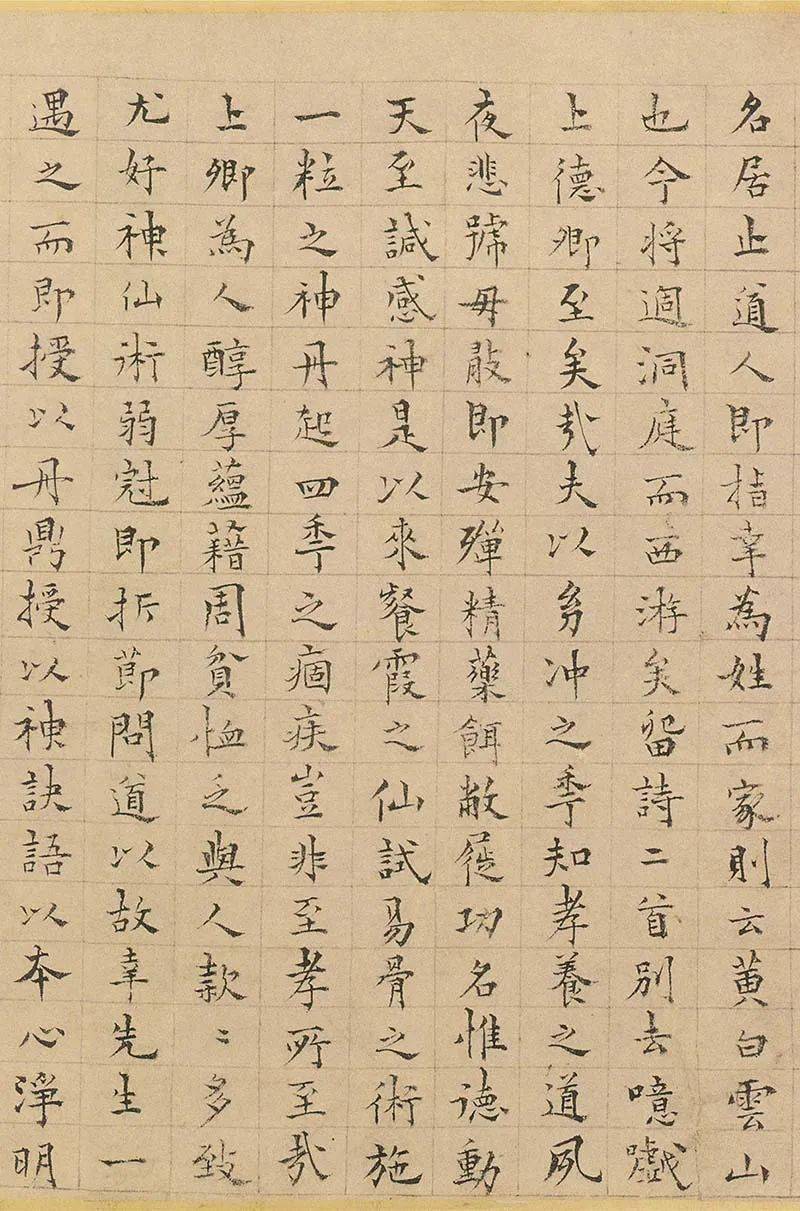 名居止道人即指幸為姓而家則云黄白雲山
也今將過洞庭而西游矣留詩二首別去噫戲
上德卿至矣哉夫以幼冲之秊知孝養之道夙
夜悲號毋敢即安殫精藥餌敝屣功名惟德動
天至諴感神是以來餐霞之仙試易骨之術施
一粒之神丹起四秊之痼疾豈非至孝所至哉
上卿為人醇厚蘊藉周貧恤乏與人款〻多致
尤好神仙術弱冠即折節問道以故幸先生一
遇之而即授以丹鼎授以神訣語以本心淨明